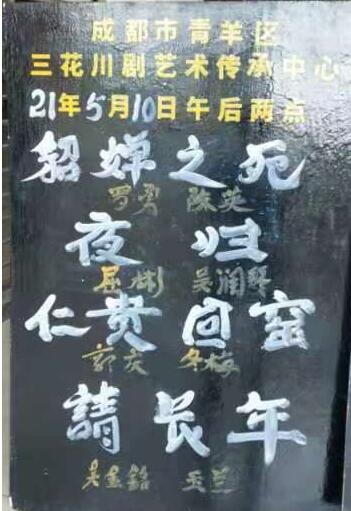 成都市青羊区
三花川剧艺术传承中心
21年5月10日午后两点
貂婵之死
罗勇 陈英
夜归
吴润琴
仁贵回窑
郭庆 冬梅
請长年
玉兰